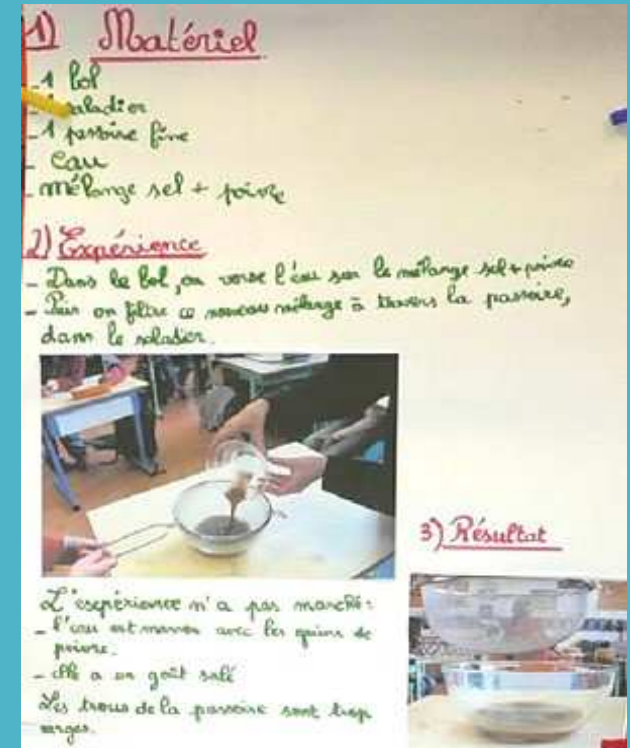 1) Matériel
- 1 bol
saladier
- 1 passoire fine
- Eau
- mélange sel + poivre
2) Expérience
- Dans le bol, on verse l'eau sur le mélange sel + poivre
- Puis on filtre ce nouveau mélange à travers la passoire,
dans le saladier.
3) Résultat
L'expérience n'a pas marché :
- l'eau est marron avec les grains de
poivre.
- elle a un goût salé
Les trous de la passoire sont trop
larges.